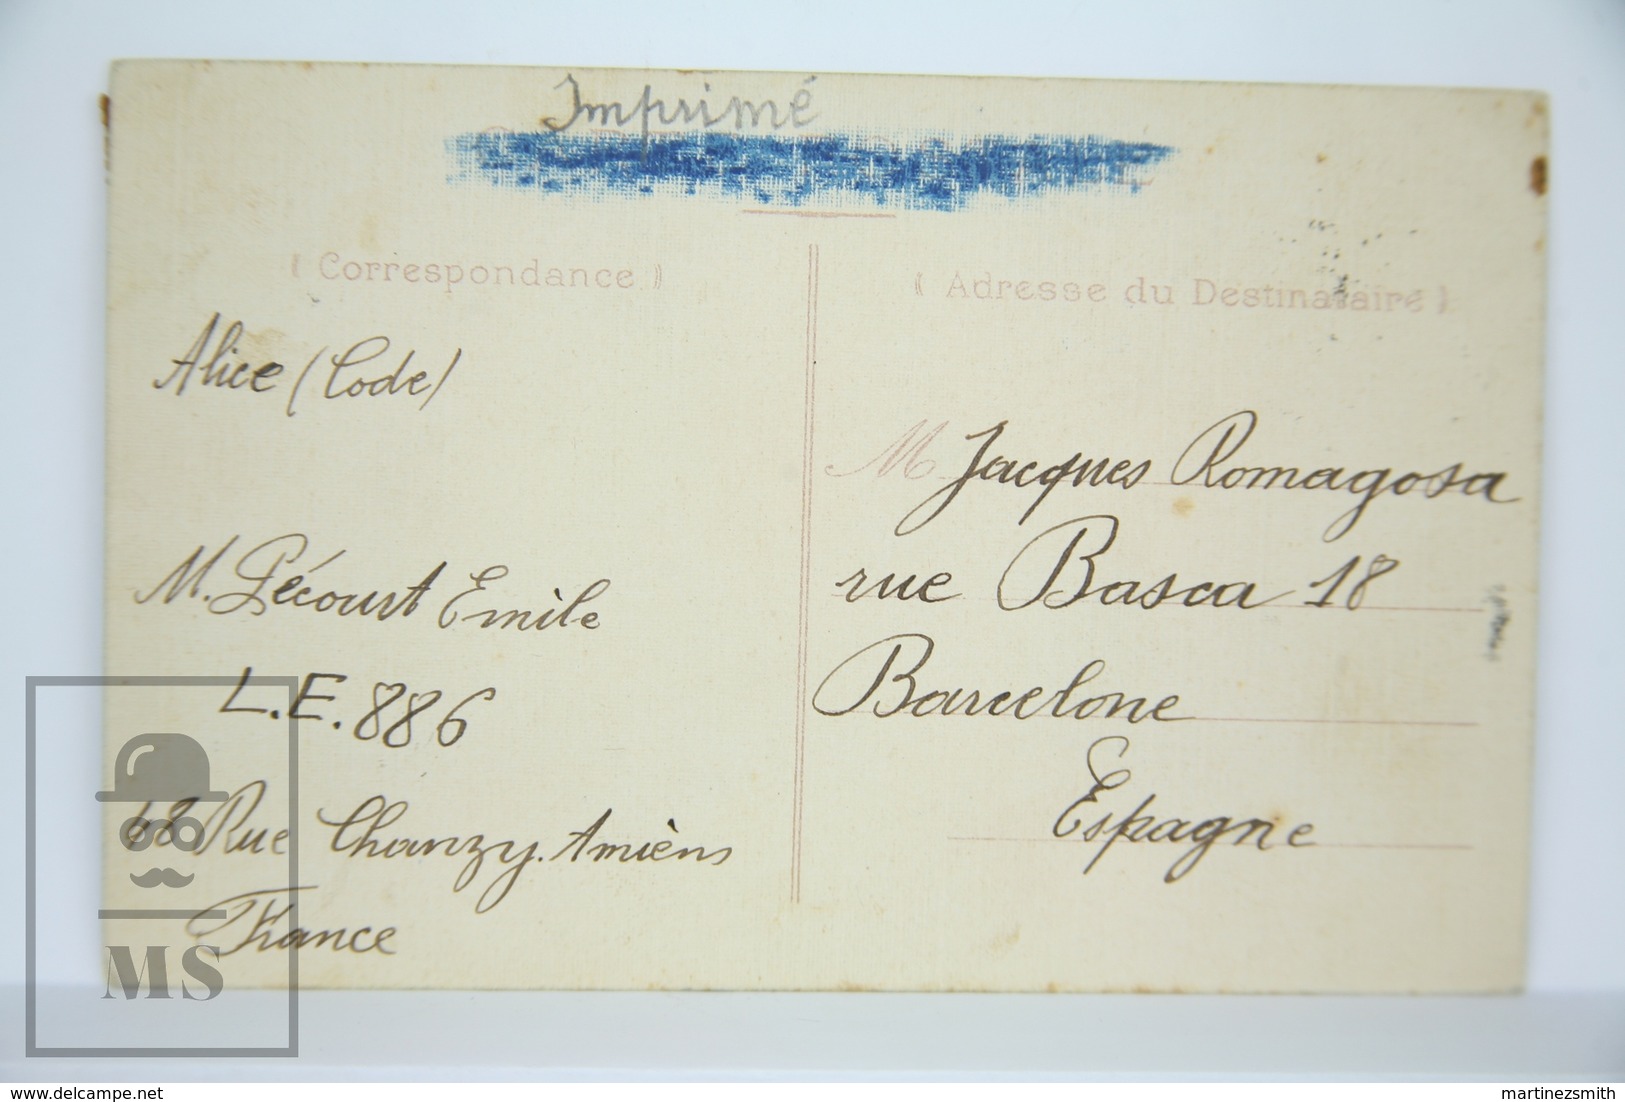 Imprimé
( Correspondance )
Alice (Code)
M. Pécourt Emile
L.E. 886
68 Rue Chanzy. Amiens
France
( Adresse du Destinataire )
M Jacques Romagosa
rue Basca 18
Barcelone
Espagne
MS
delcampe.net
martinezsmith